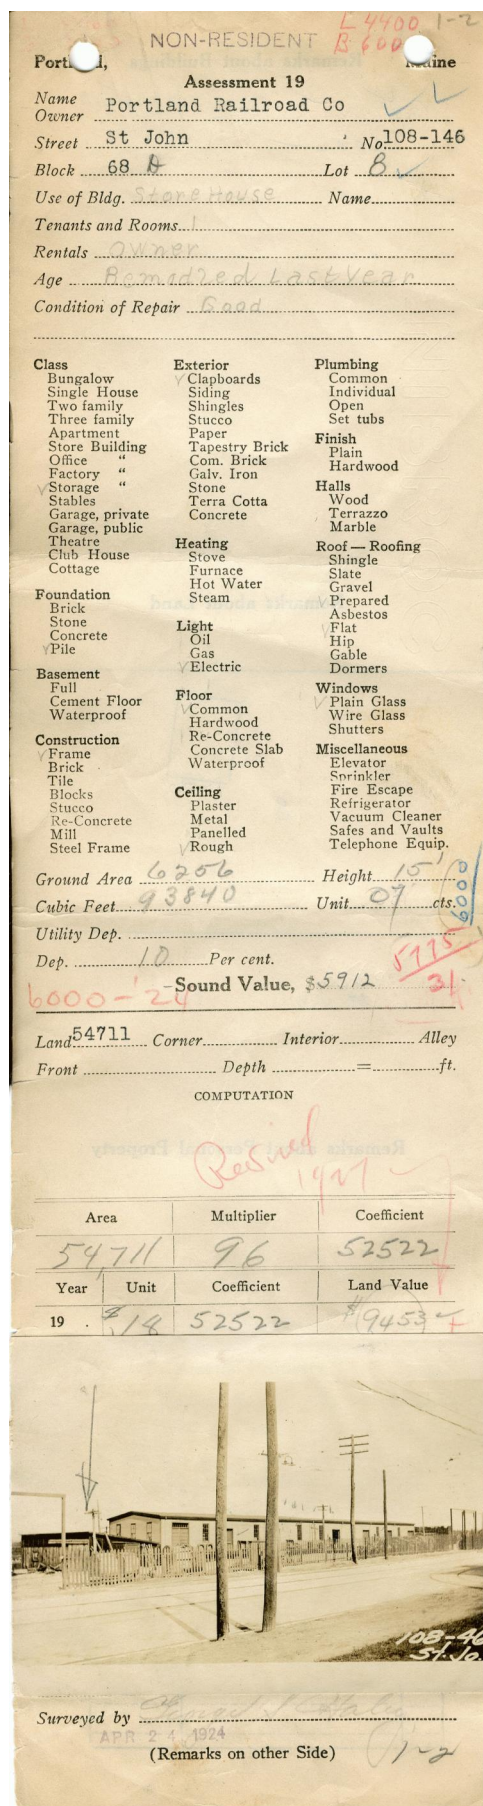 L 4400 1-2
NON-RESIDENT B 600
Portland, Maine
Assessment 19
Name
Owner Portland Railroad Co
Street St John No. 108-146
Block 68 D Lot 8
Use of Bldg. Store House Name
Tenants and Rooms 1
Rentals Owner
Age Remodled Last Year
Condition of Repair Good
Class
Bungalow
Single House
Two family
Three family
Apartment
Store Building
Office "
Factory "
Storage "
Stables
Garage, private
Garage, public
Theatre
Club House
Cottage
Foundation
Brick
Stone
Concrete
Pile
Basement
Full
Cement Floor
Waterproof
Construction
Frame
Brick
Tile
Blocks
Stucco
Re-Concrete
Mill
Steel Frame
Exterior
Clapboards
Siding
Shingles
Stucco
Paper
Tapestry Brick
Com. Brick
Galv. Iron
Stone
Terra Cotta
Concrete
Heating
Stove
Furnace
Hot Water
Steam
Light
Oil
Gas
Electric
Floor
Common
Hardwood
Re-Concrete
Concrete Slab
Waterproof
Ceiling
Plaster
Metal
Panelled
Rough
Plumbing
Common
Individual
Open
Set tubs
Finish
Plain
Hardwood
Halls
Wood
Terrazzo
Marble
Roof — Roofing
Shingle
Slate
Gravel
Prepared
Asbestos
Flat
Hip
Gable
Dormers
Windows
Plain Glass
Wire Glass
Shutters
Miscellaneous
Elevator
Sprinkler
Fire Escape
Refrigerator
Vacuum Cleaner
Safes and Vaults
Telephone Equip.
Ground Area 6256 Height 15'
Cubic Feet 93840 Unit 07 cts.
6000
Utility Dep.
Dep. 10 Per cent.
5775
31
6000-'24 Sound Value, $5912
Land 54711 Corner Interior Alley
Front Depth = ft.
COMPUTATION
Revised
1927
Area Multiplier Coefficient
54,711 96 52522
Year Unit Coefficient Land Value
19 . $.18 52522 $9453
108-46
St. Jo
Surveyed by
APR 24 1924
(Remarks on other Side) 1-2